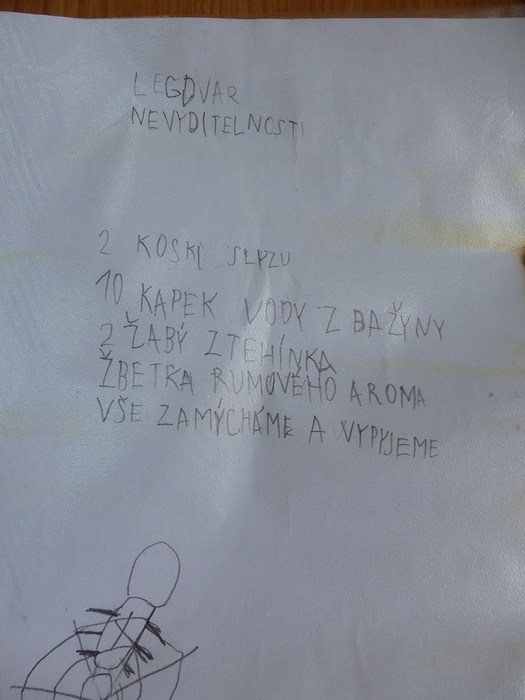 LEGDVAR
NEVYDITELNOSTI
2 KOSKI SLYZU
10 KAPEK VODY Z BAŽYNY
2 ŽABÝ ZTEHÍNKA
ŽBETKA RUMOVÉHO AROMA
VŠE ZAMÝCHÁME A VYPYJEME